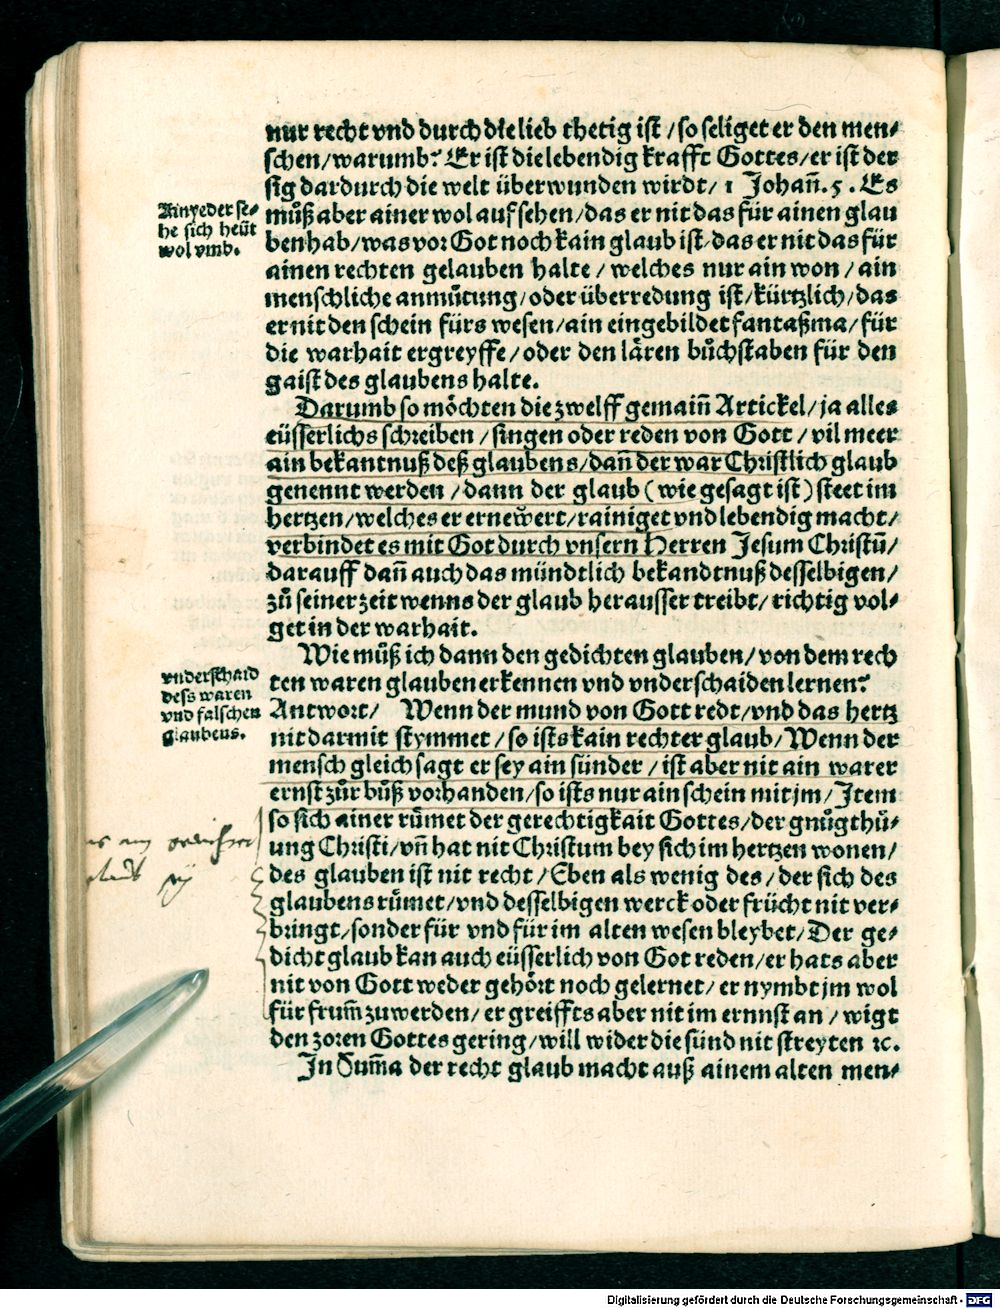 nur recht vnd durch die lieb thetig ist / so seliget er den men⸗
schen / warumb? Er ist die lebendig krafft Gottes / er ist der
sig dardurch die welt überwunden wirdt / 1 Johañ. 5. Es
Ainyeder se⸗
he sich heüt
wol vmb.
můß aber ainer wol auf sehen / das er nit das für ainen glau
ben hab / was vor Got noch kain glaub ist / das er nit das für
ainen rechten gelauben halte / welches nur ain won / ain
menschliche anmůtung / oder überredung ist / kürtzlich / das
er nit den schein fürs wesen / ain eingebildet fantaßma / für
die warhait ergreyffe / oder den lären bůchstaben für den
gaist des glaubens halte.
Darumb so möchten die zwelff gemaiñ Artickel / ja alles
eüsserlichs schreiben / singen oder reden von Gott / vil meer
ain bekantnuß deß glaubens / dañ der war Christlich glaub
genennt werden / dann der glaub (wie gesagt ist) steet im
hertzen / welches er ernewert / rainiget vnd lebendig macht /
verbindet es mit Got durch vnsern Herren Jesum Christũ /
darauff dañ auch das mündtlich bekandtnuß desselbigen /
zů seiner zeit wenns der glaub herausser treibt / richtig vol⸗
get in der warhait.
Wie můß ich dann den gedichten glauben / von dem rech
vnderschaid
dess waren
vnd falschen
glaubens.
ten waren glauben erkennen vnd vnderschaiden lernen?
Antwort / Wenn der mund von Gott redt / vnd das hertz
nit darmit stymmet / so ists kain rechter glaub / Wenn der
mensch gleich sagt er sey ain sünder / ist aber nit ain warer
ernst zůr bůß vorhanden / so ists nur ain schein mit jm / Item
so sich ainer růmet der gerechtigkait Gottes / der gnůgthů⸗
ung Christi / vñ hat nit Christum bey sich im hertzen wonen /
des glauben ist nit recht / Eben als wenig des / der sich des
glaubens růmet / vnd desselbigen werck oder frücht nit ver⸗
bringt / sonder für vnd für im alten wesen bleybet / Der ge⸗
dicht glaub kan auch eüsserlich von Got reden / er hats aber
nit von Gott weder gehört noch gelernet / er nymbt jm wol
für frum̃ zuwerden / er greiffts aber nit im ernnst an / wigt
den zoren Gottes gering / will wider die sünd nit streyten ꝛc.
In Sum̃a der recht glaub macht auß ainem alten men⸗
Digitalisierung gefördert durch die Deutsche Forschungsgemeinschaft - DFG